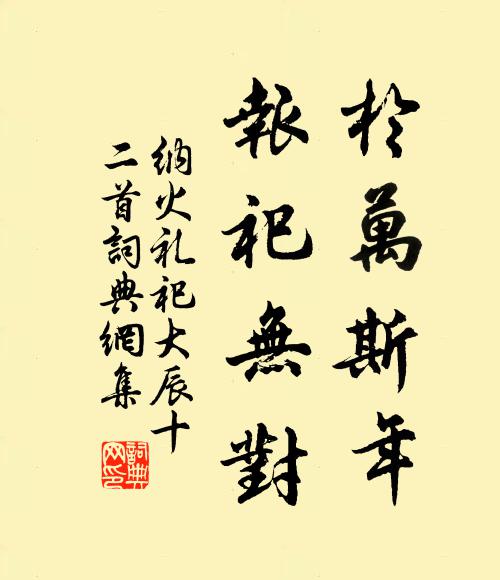 於萬斯年
報祀無對
納火礼祀大辰十
二首詞典網集
詞典
网印